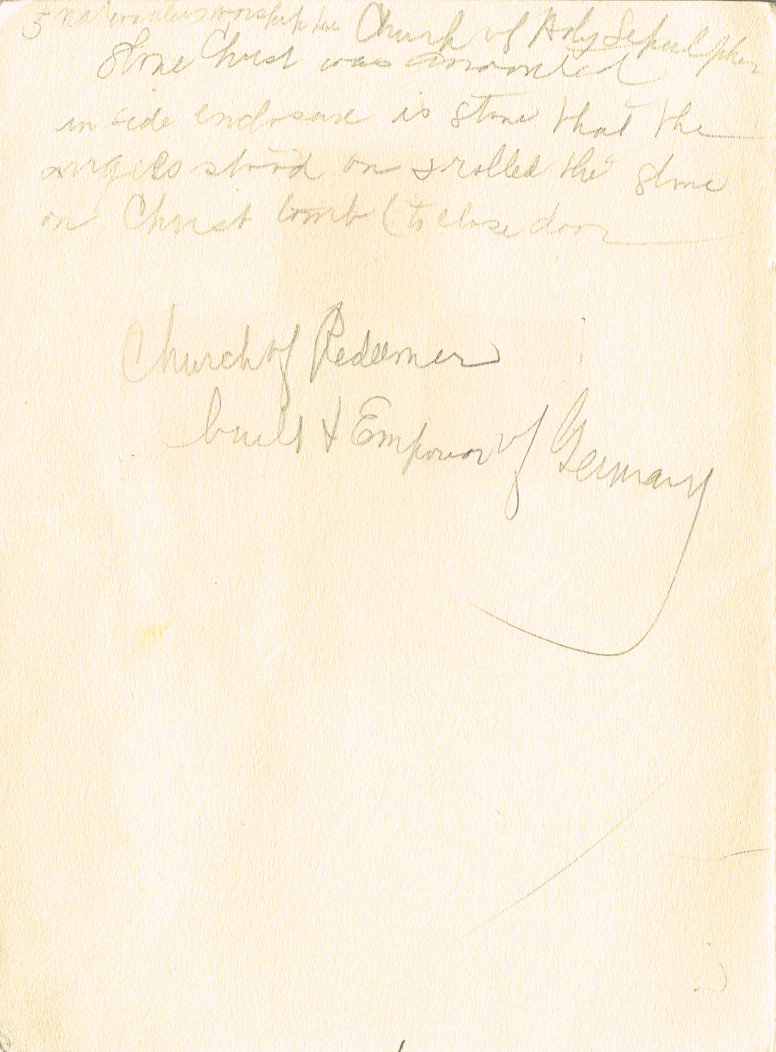 5 nationalies worship here Church of Holy Sepulpher
Stone Christ was annointed
in side enclosure is stone that the
angels stood on & rolled the stone
on Christ tomb (to close door
Church of Redeemer
built & Emperor of Germany